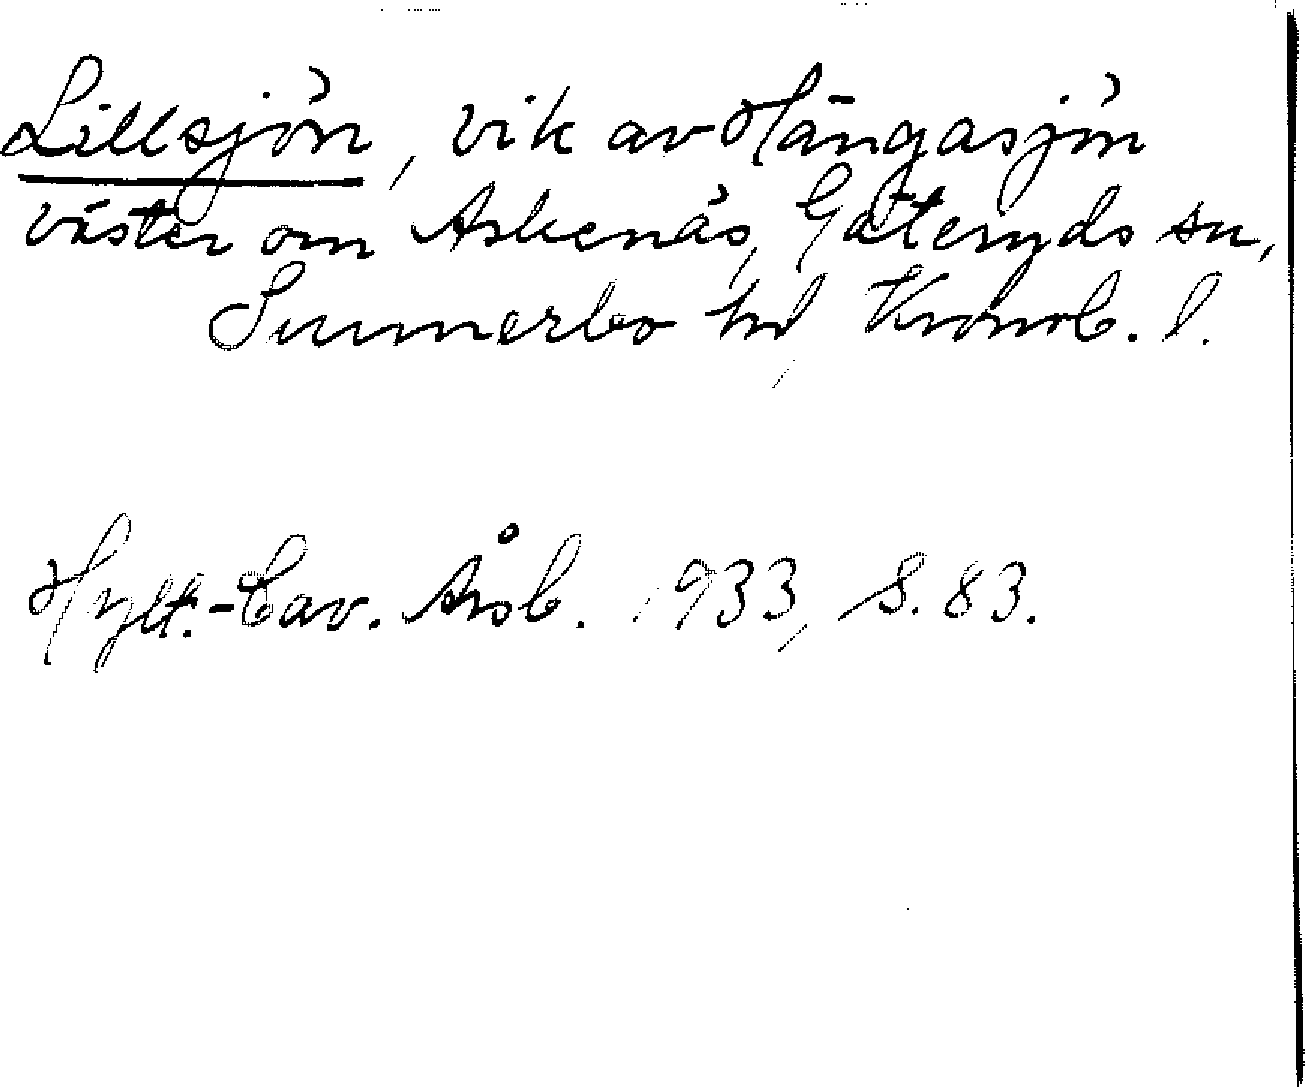 Lillsjön, vik av Hängasjön
väster om Askenäs, Göteryds sn,
Sunnerbo hd, Kronob. l.
Hylt.-Cav. Årsb. 1933, S. 83.